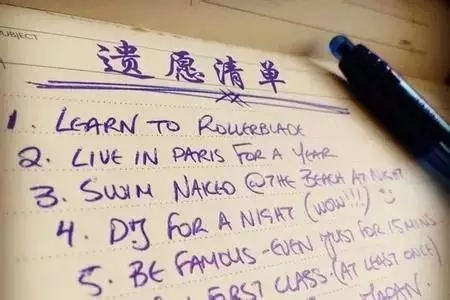 SUBJECT
遗愿清单
1. LEARN TO ROLLERBLADE
2. LIVE IN PARIS FOR A YEAR
3. SWIM NAKED @ THE BEACH AT NIGHT
4. DJ FOR A NIGHT (WOW!!!)
5. BE FAMOUS - EVEN JUST FOR 15 MINS
FIRST CLASS (AT LEAST ONCE)
JAPAN.